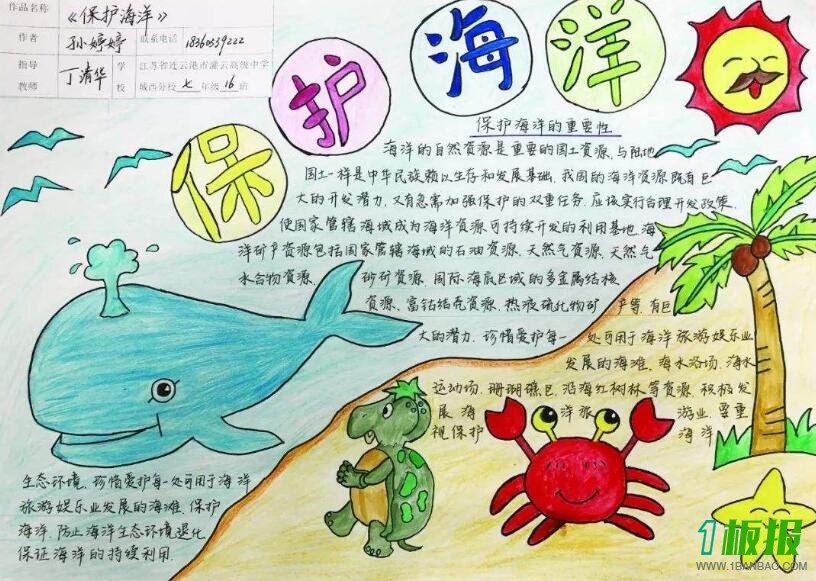 作品名称 《保护海洋》
作者 孙婷婷 联系电话 18360539222
指导教师 丁清华 学校 江苏省连云港市灌云高级中学
城西分校 七 年级 16 班
保护海洋
保护海洋的重要性
海洋的自然资源是重要的国土资源、与陆地
国土一样是中华民族赖以生存和发展基础、我国的海洋资源既有巨
大的开发潜力、又有急需加强保护的双重任务、应该实行合理开发政策、
使国家管辖海域成为海洋资源可持续开发的利用基地、海
洋矿产资源包括国家管辖海域的石油资源、天然气资源、天然气
水合物资源、砂矿资源、国际海底区域的多金属结核
资源、富钴结壳资源、热液硫化物矿产等、有巨
大的潜力、珍惜爱护每一处可用于海洋旅游娱乐业
发展的海滩、海水浴场、海水
运动场、珊瑚礁区、沿海红树林等资源、积极发
展海洋旅游业、要重
视保护海洋
生态环境、珍惜爱护每一处可用于海洋
旅游娱乐业发展的海滩、保护
海洋、防止海洋生态环境退化、
保证海洋的持续利用
1板报
WWW.1BANBAO.COM